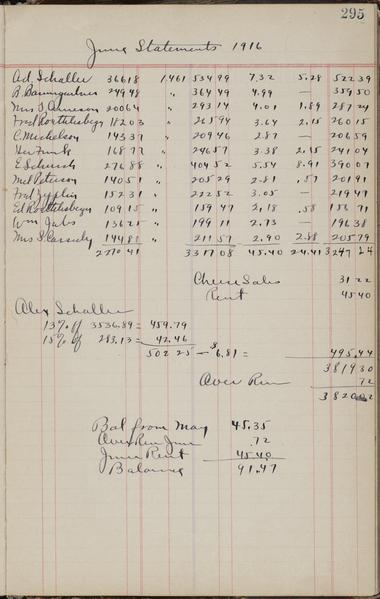 295
June Statements 1916
Ad. Schaller 366 18 1.461 534 99 7.32 5.28 522 39
B. Baumgartner 249 48 " 364 49 4.99 — 359 50
Mrs J. Arneson 200 64 " 293 14 4.01 1.89 287 24
Fred Roethlisberger 182 03 " 265 94 3.64 2.15 260 15
C. Mickelson 143 37 " 209 46 2.87 — 206 59
Her Funk 168 77 " 246 57 3.38 2.15 241 04
E Schurch 276 88 " 404 52 5.54 8.91 390 07
Ned Peterson 140 51 " 205 29 2.81 .57 201 91
Fred 152 31 " 222 52 3.05 — 219 47
Ed Roethlisberger 109 15 " 159 47 2.18 .58 156 71
Wm Jabs 136 25 " 199 11 2.73 — 196 38
Mrs S. Cassidy 144 81 " 211 57 2.90 2.88 205 79
2270 41 3317 08 45.40 24.41 3247 24
Cheese Sales 31 22
Rent 45 40
Alex Schaller
13% of 3536.89 = 459.79
15% of 283.13 = 42.46
502 25 — $6.81 = 495.44
3819 30
Over Run 72
3820 02
Bal from May 45.35
Over Run June .72
June Rent 45.40
Balance 91.47